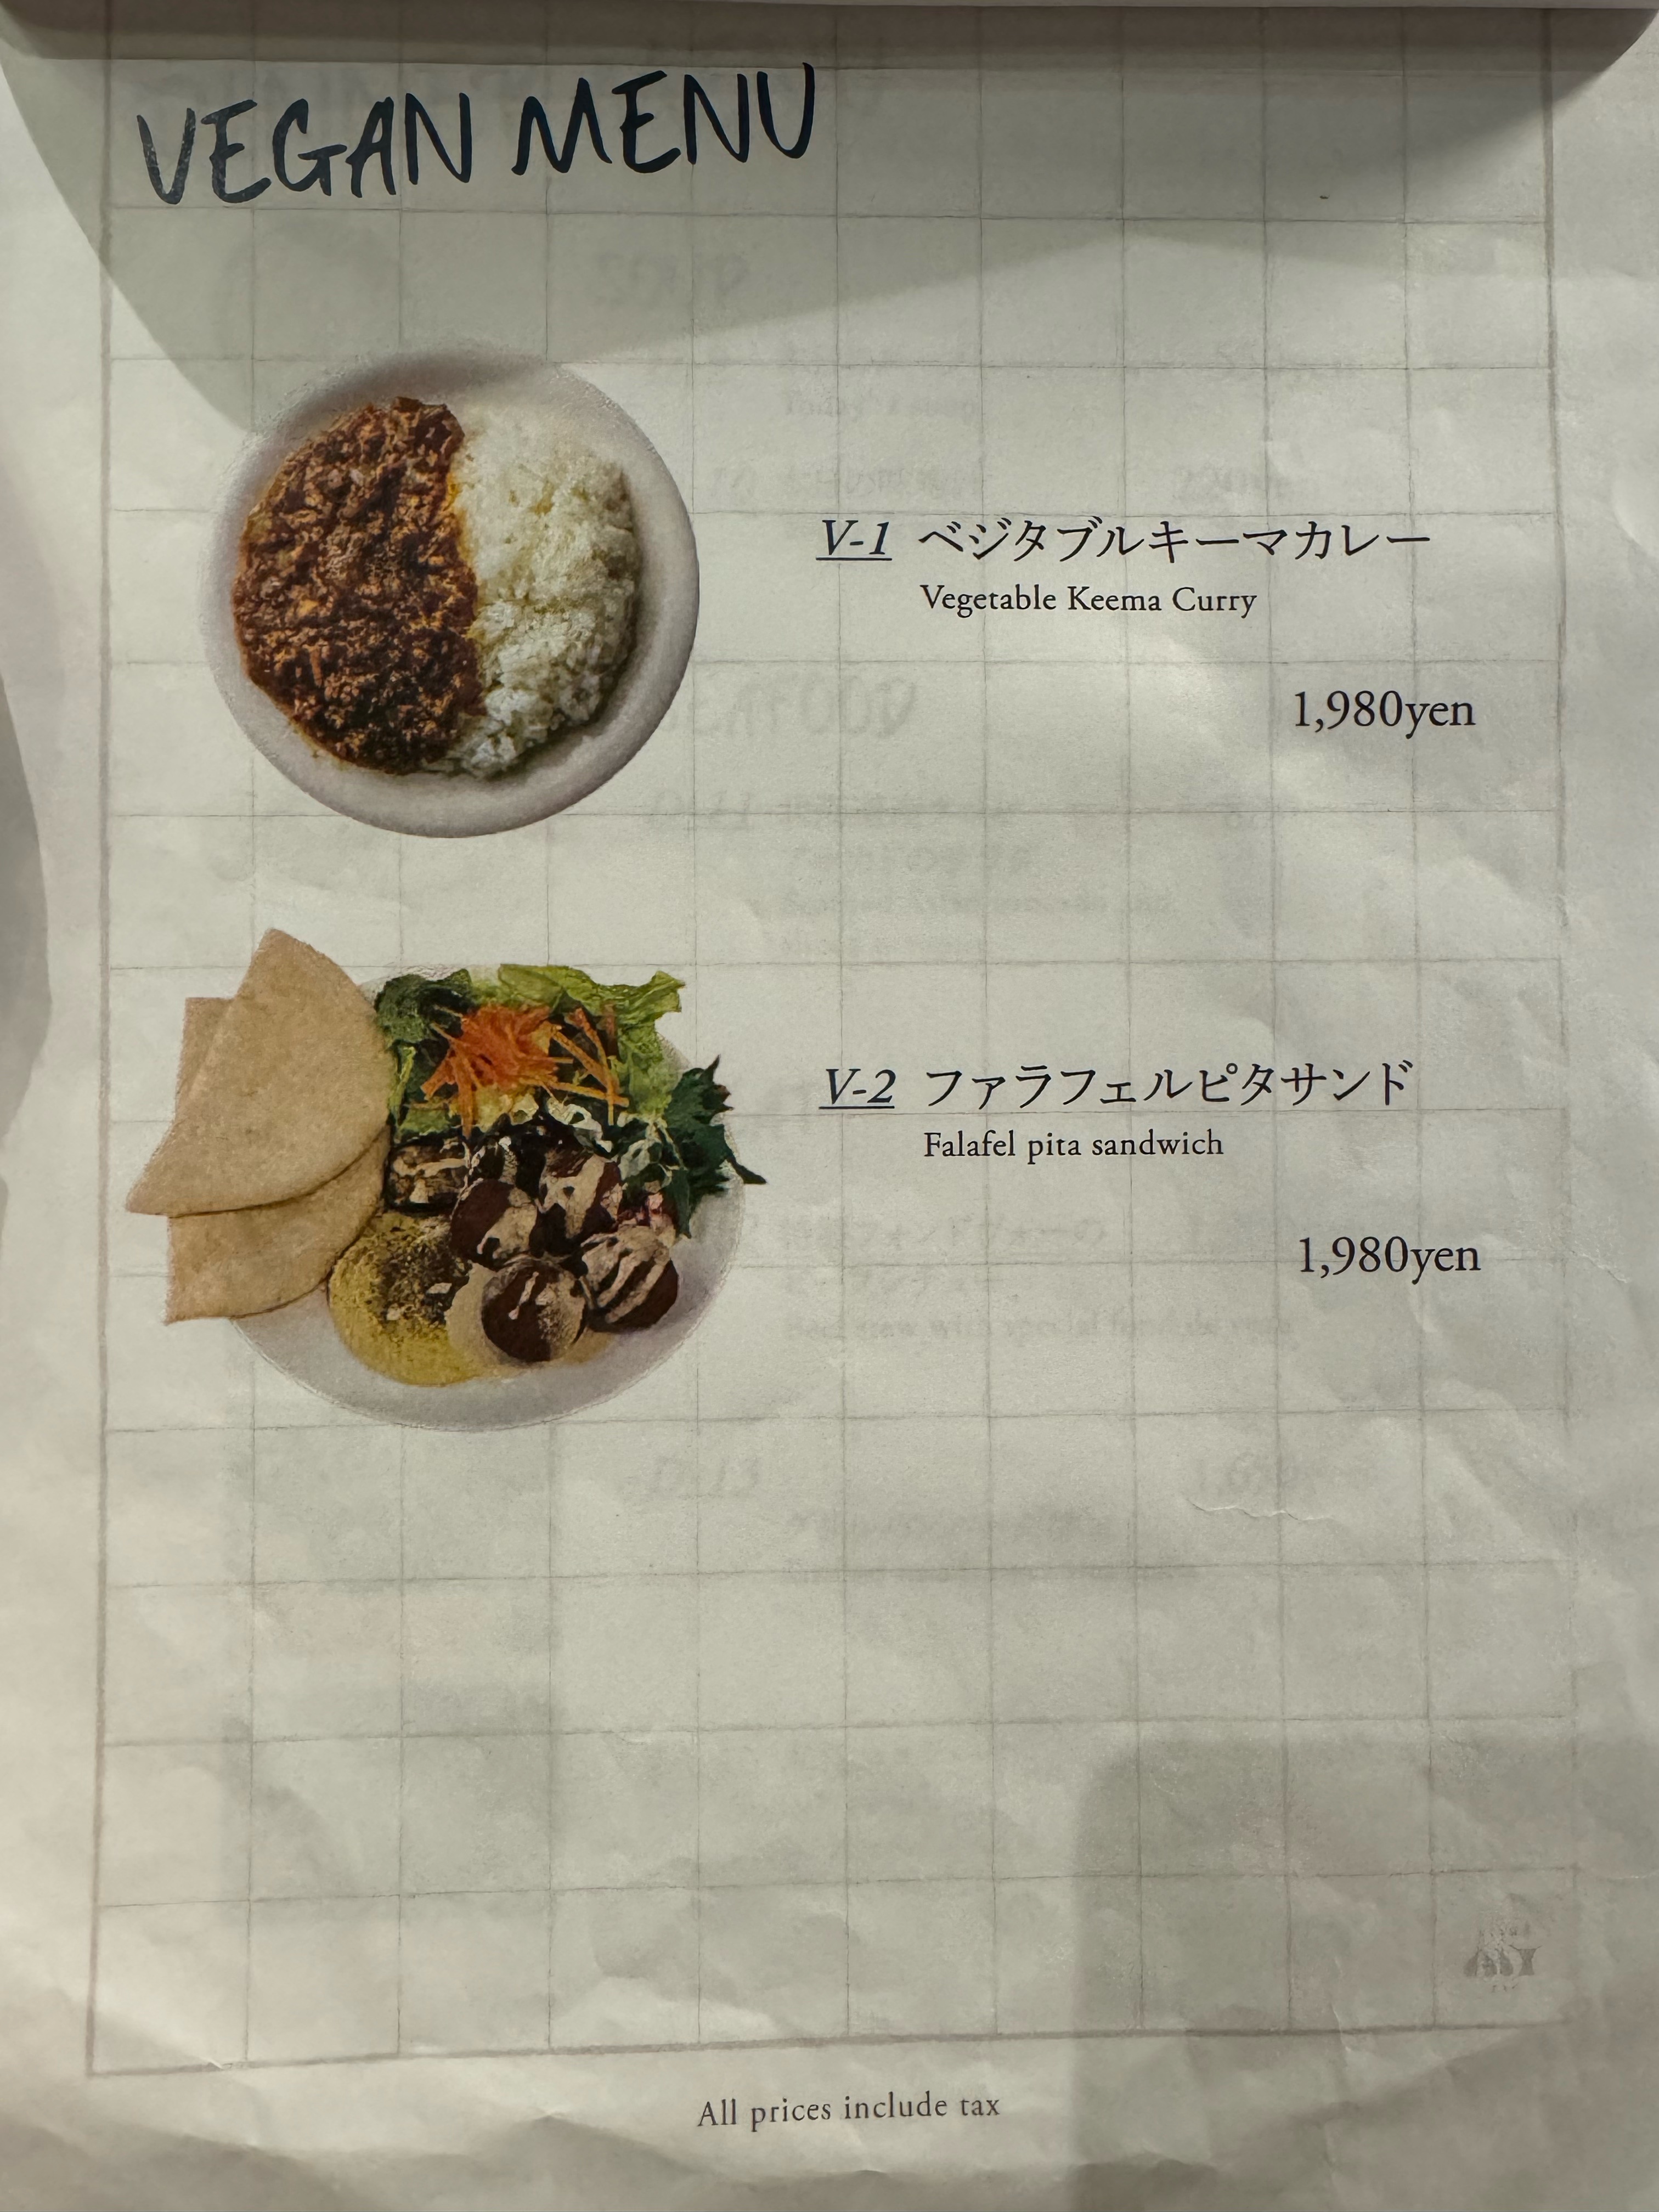 VEGAN MENU
V-1 ベジタブルキーマカレー
Vegetable Keema Curry
1,980yen
V-2 ファラフェルピタサンド
Falafel pita sandwich
1,980yen
All prices include tax